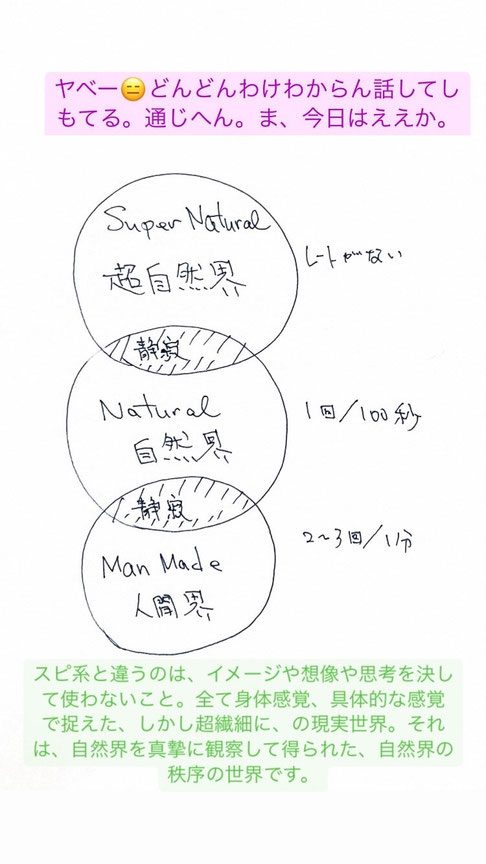 ヤベー😑どんどんわけわからん話してし
もてる。通じへん。ま、今日はええか。
Super Natural
超自然界
レートがない
静寂
Natural
自然界
1回/100秒
静寂
Man Made
人間界
2〜3回/1分
スピ系と違うのは、イメージや想像や思考を決し
て使わないこと。全て身体感覚、具体的な感覚
で捉えた、しかし超繊細に、の現実世界。それ
は、自然界を真摯に観察して得られた、自然界の
秩序の世界です。